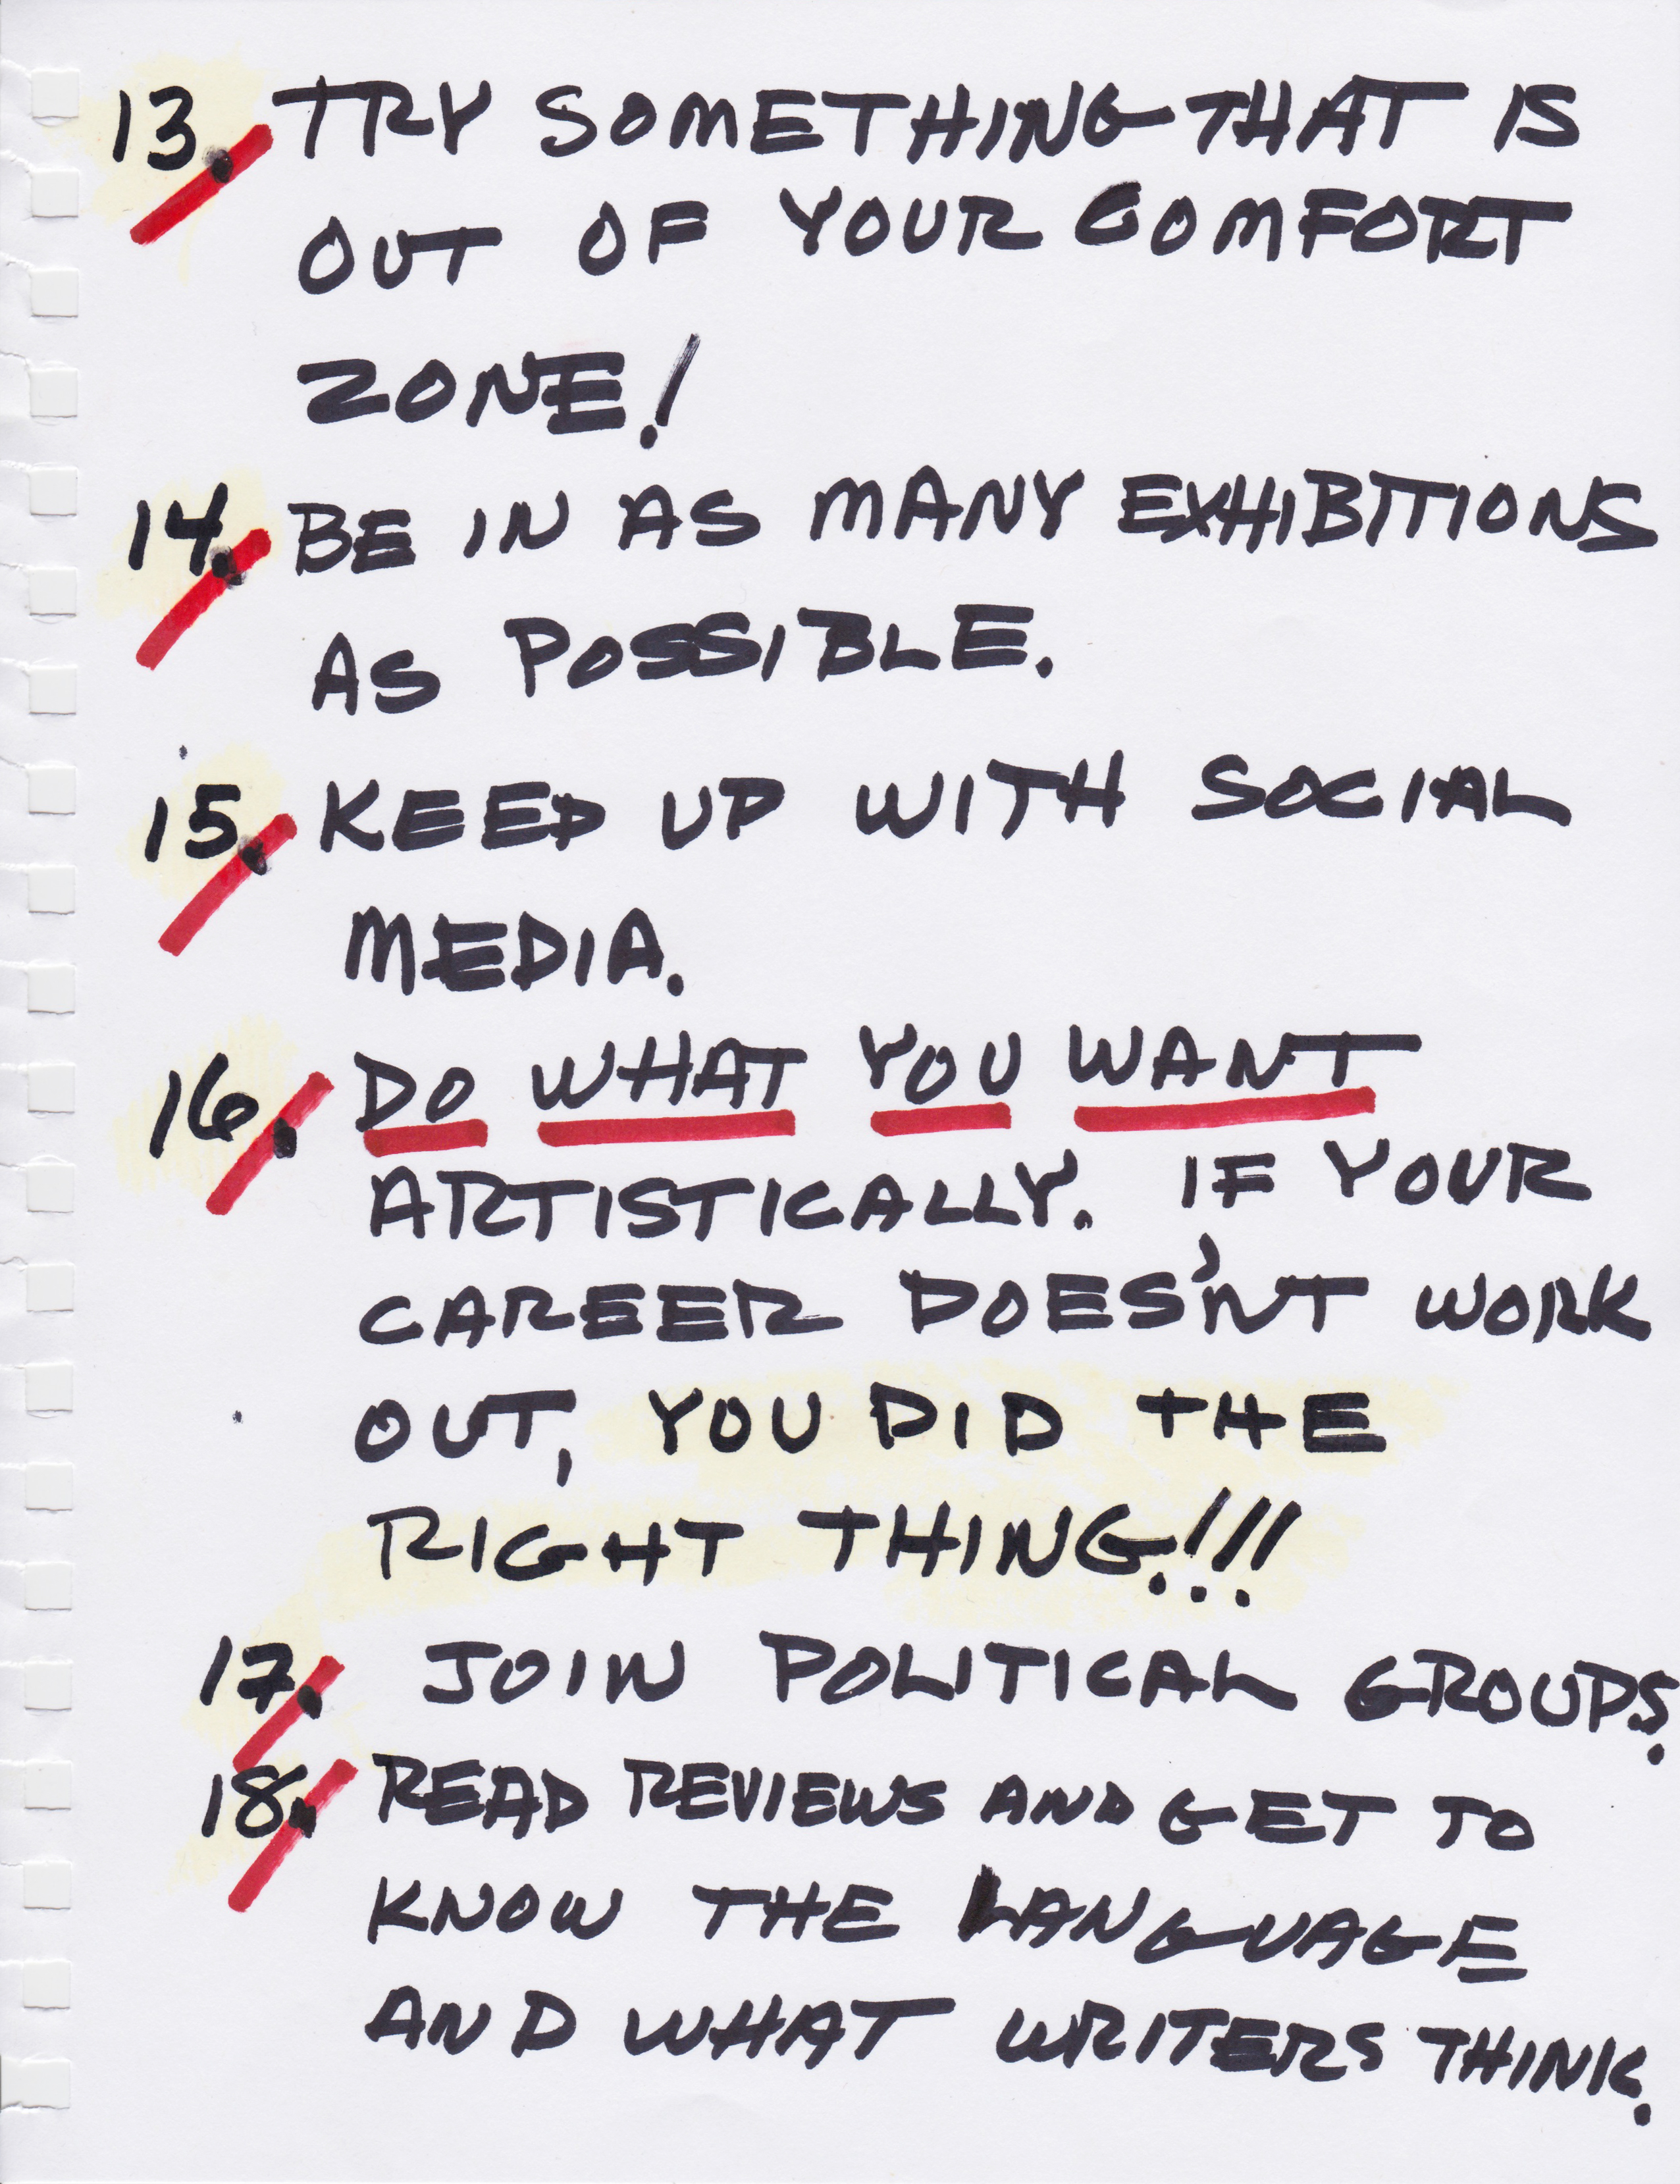 13. TRY SOMETHING THAT IS
OUT OF YOUR COMFORT
ZONE!
14. BE IN AS MANY EXHIBITIONS
AS POSSIBLE.
15. KEEP UP WITH SOCIAL
MEDIA.
16. DO WHAT YOU WANT
ARTISTICALLY. IF YOUR
CAREER DOES'NT WORK
OUT, YOU DID THE
RIGHT THING!!!
17. JOIN POLITICAL GROUPS.
18. READ REVIEWS AND GET TO
KNOW THE LANGUAGE
AND WHAT WRITERS THINK.